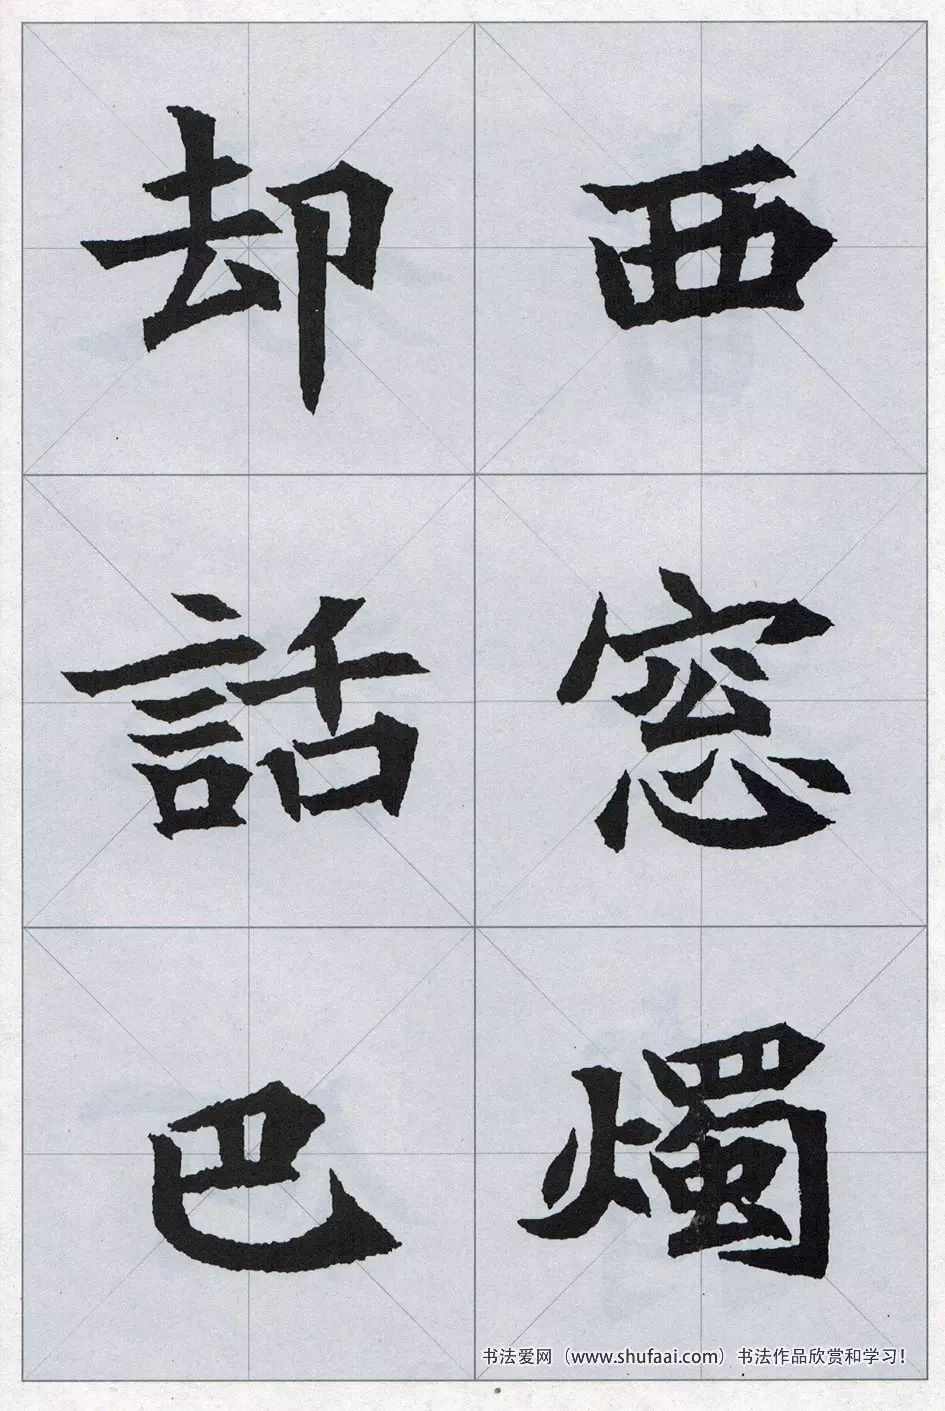 西窓燭
却話巴
书法爱网（www.shufaai.com）书法作品欣赏和学习！